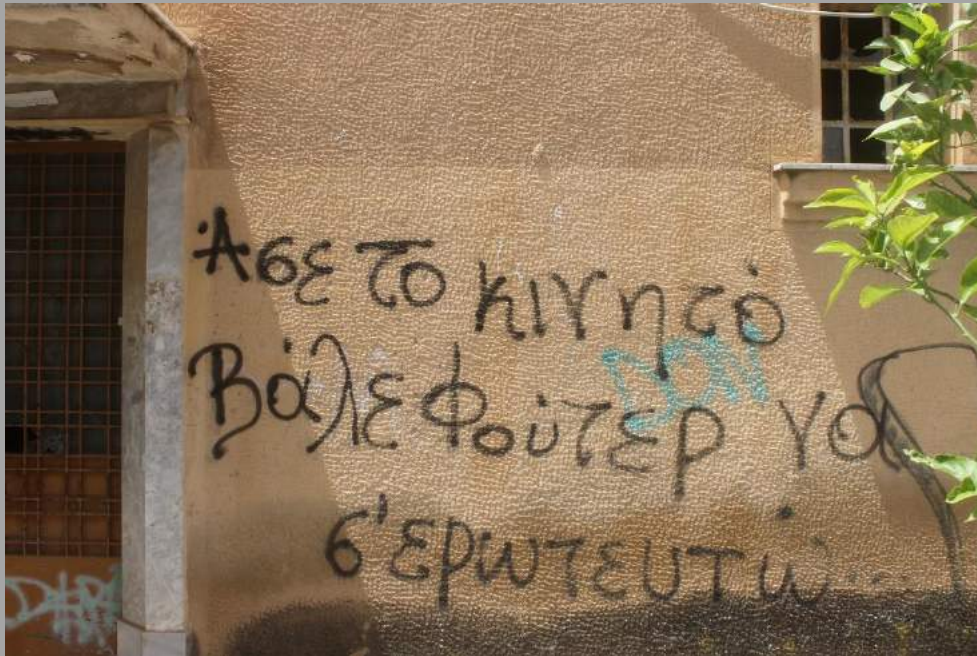 Άσε το κινητό
DON
Βάλε φούτερ να
σ'ερωτευτώ...